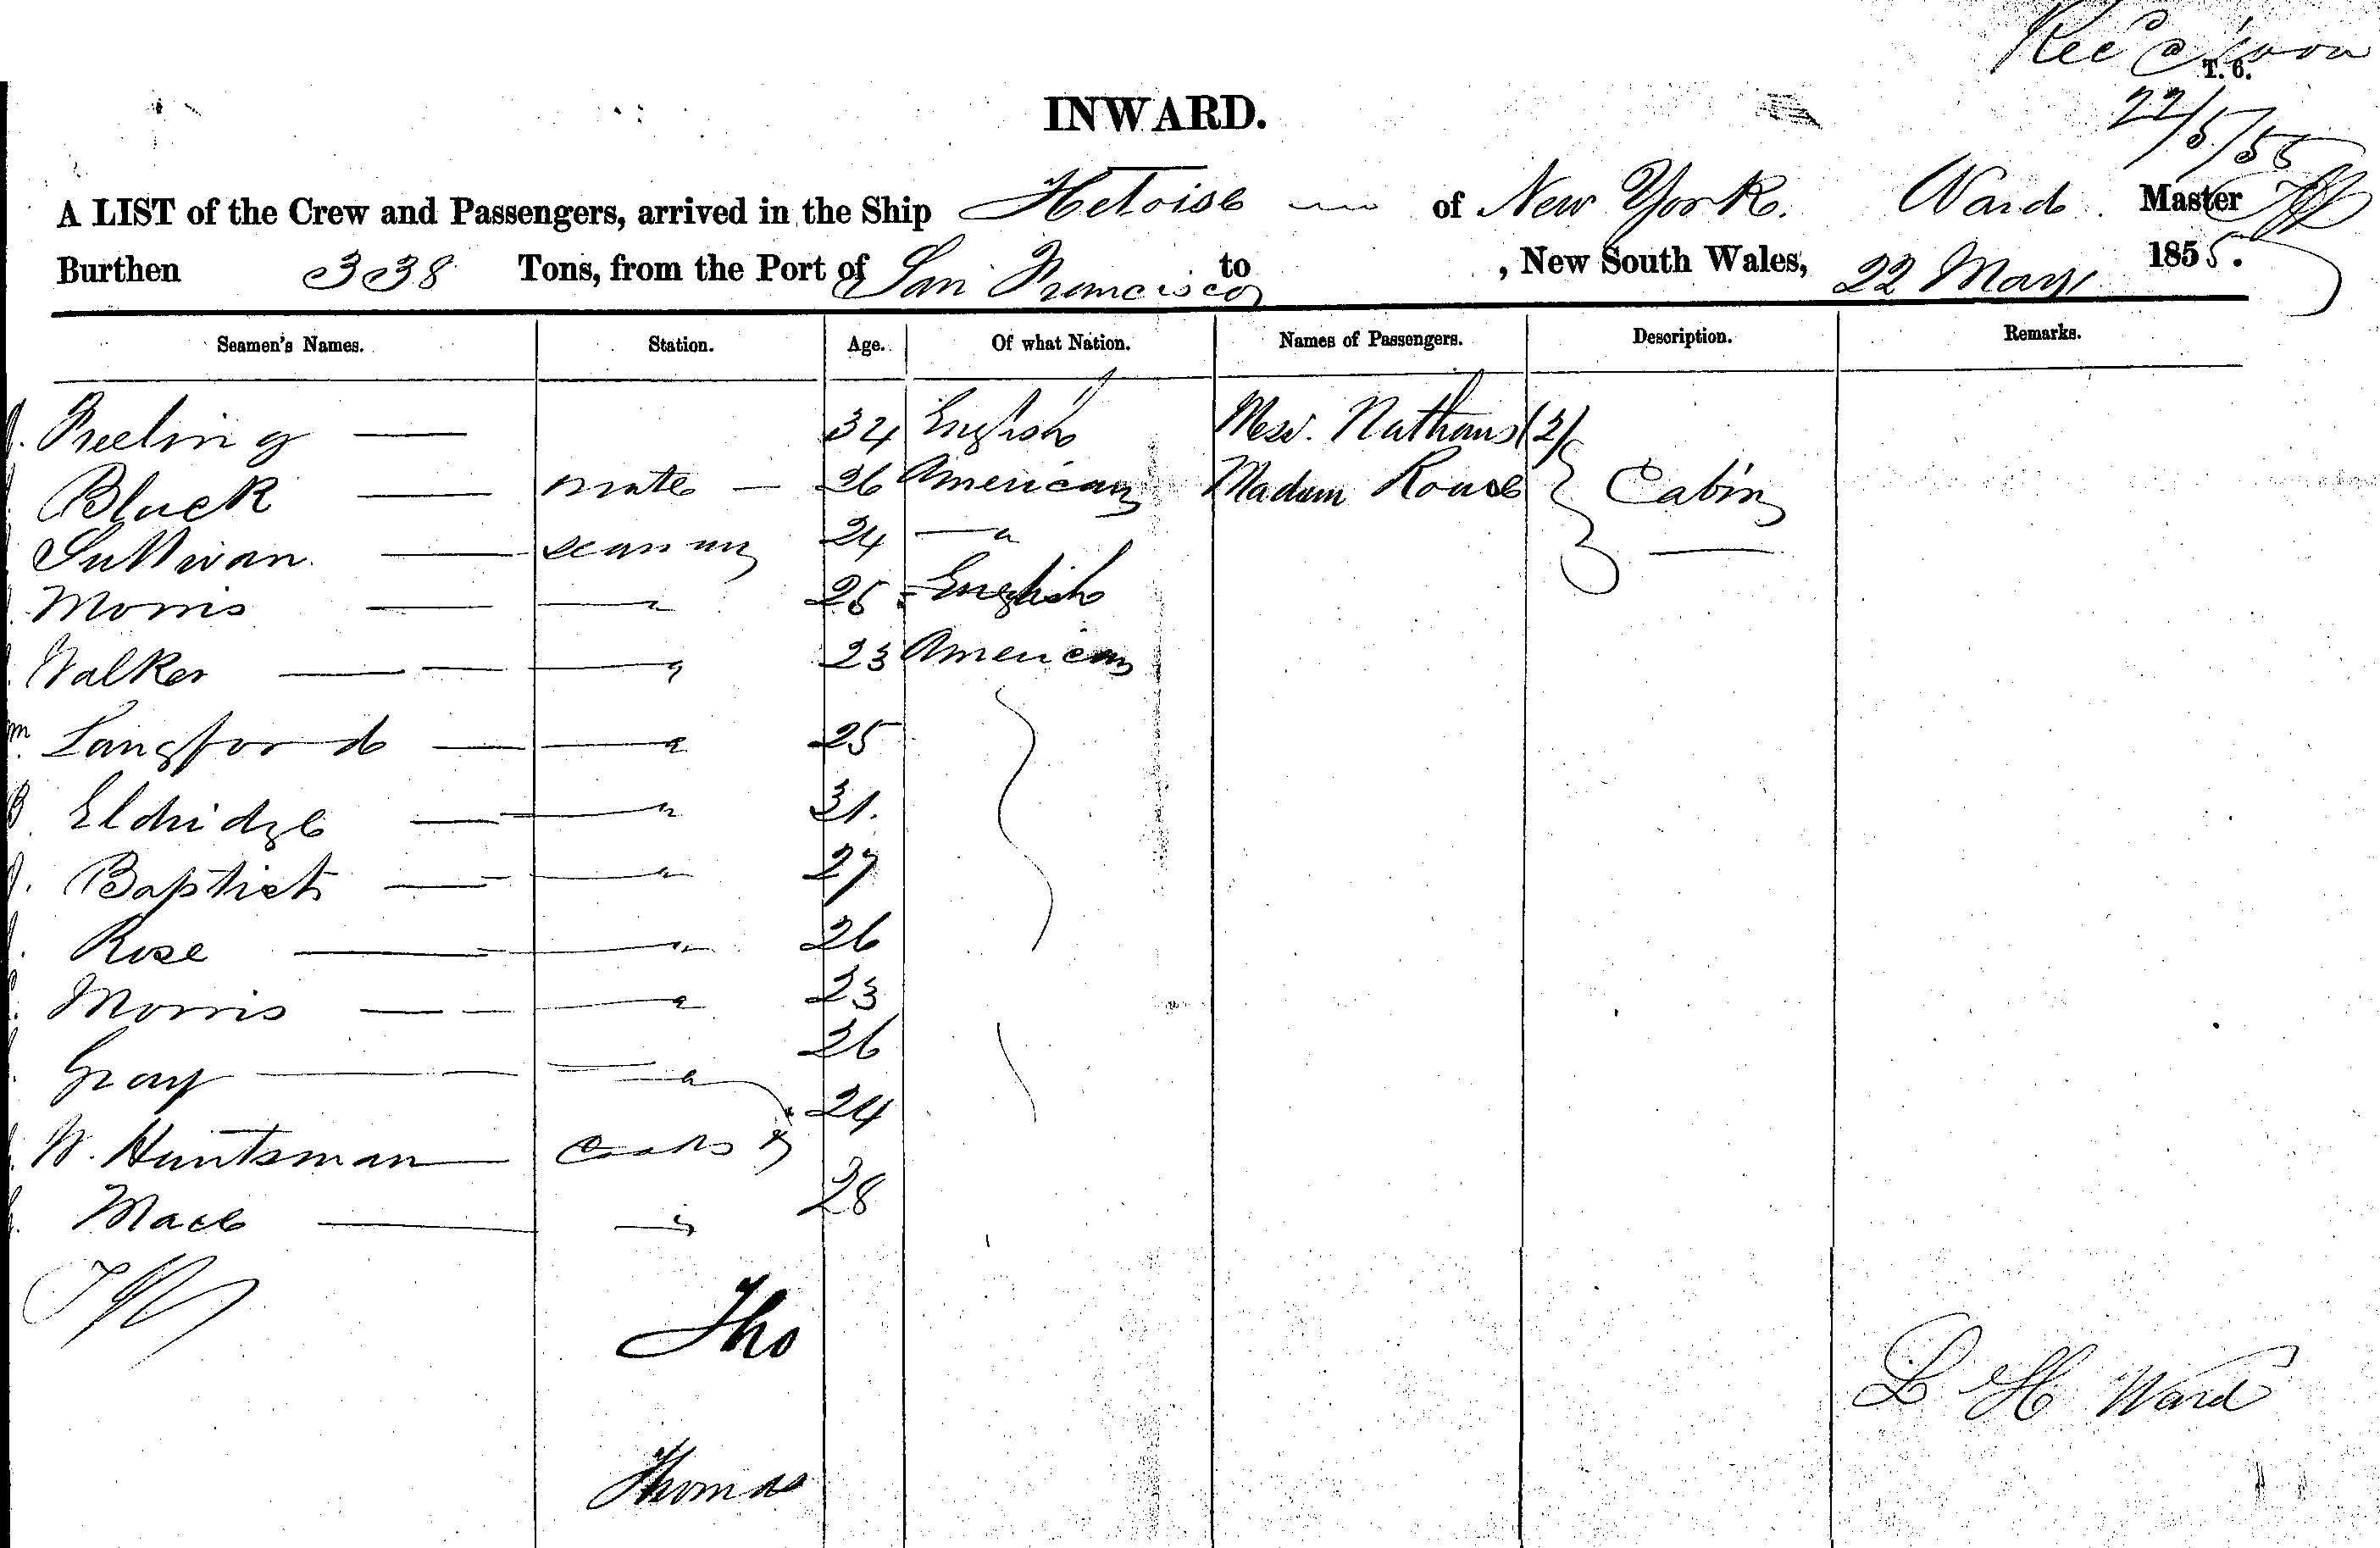 T. 6.
22/5/55
INWARD.
A LIST of the Crew and Passengers, arrived in the Ship Heloise of New York. Ward. Master
Burthen 338 Tons, from the Port of San Francisco to , New South Wales, 22 May 1855.
Seamen's Names. Station. Age. Of what Nation. Names of Passengers. Description. Remarks.
34 English Messr. Nathans (2)
Black mate 26 American Madam Cabin
Sullivan seaman 24 — "
Morris — " 25 English
Walker — " 23 American
Langford — " 25
B Eldridge — " 31.
J. Baptist — " 27
Rose — " 26
Morris — " 23
Gray — " 26
W. Huntsman Cooks 24
Mace — " 28
Tho
L H Ward
Thomas